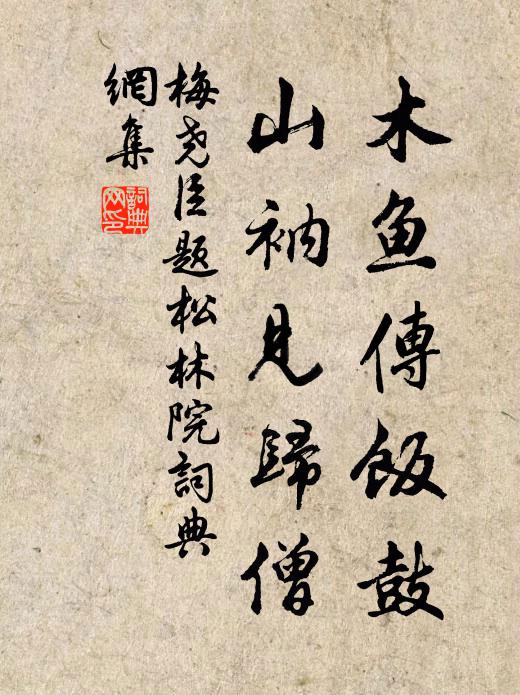 木鱼傳飯鼓
山衲見歸僧
梅尧臣题松林院詞典
網集
詞典網印